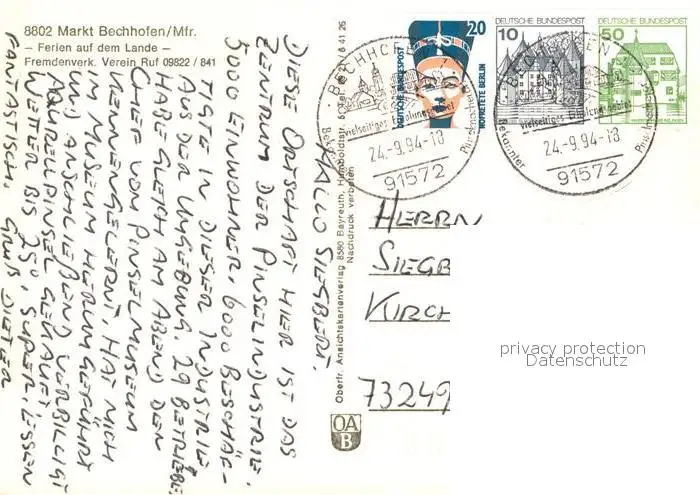 8802 Markt Bechhofen/Mfr.
– Ferien auf dem Lande –
Fremdenverk. Verein Ruf 09822 / 841
HALLO SIEGBERT,
DIESE ORTSCHAFT HIER IST DAS
ZENTRUM DER PINSELINDUSTRIE.
5000 EINWOHNER, 6000 BESCHÄF-
TIGTE IN DIESER INDUSTRIE
AUS DER UMGEBUNG. 29 BETRIEBE.
HABE GLEICH AM ABEND DEN
CHEF VOM PINSELMUSEUM
KENNENGELERNT, HAT MICH
IM MUSEUM HERUMGEFÜHRT
UND ANSCHLIEßEND VERBILLIGT
AQUARELLPINSEL GEKAUFT.
WETTER BIS 25°, SUPER, ESSEN
FANTASTISCH. GRUß DIETER
Oberfr. Ansichtskartenverlag 8580 Bayreuth, Humboldtstr.
Nachdruck verboten
OA
B
20
DEUTSCHE BUNDESPOST
NOFRETETE BERLIN
10
DEUTSCHE BUNDESPOST
50
DEUTSCHE BUNDESPOST
BECHHOFEN
vielseitiges Erholungsgebiet
24.-9.94-18
91572
BECHHOFEN
vielseitiges Erholungsgebiet
Bekannter
24.-9.94-18
91572
HERRN
SIEGB
KIRCH
73249
privacy protection
Datenschutz